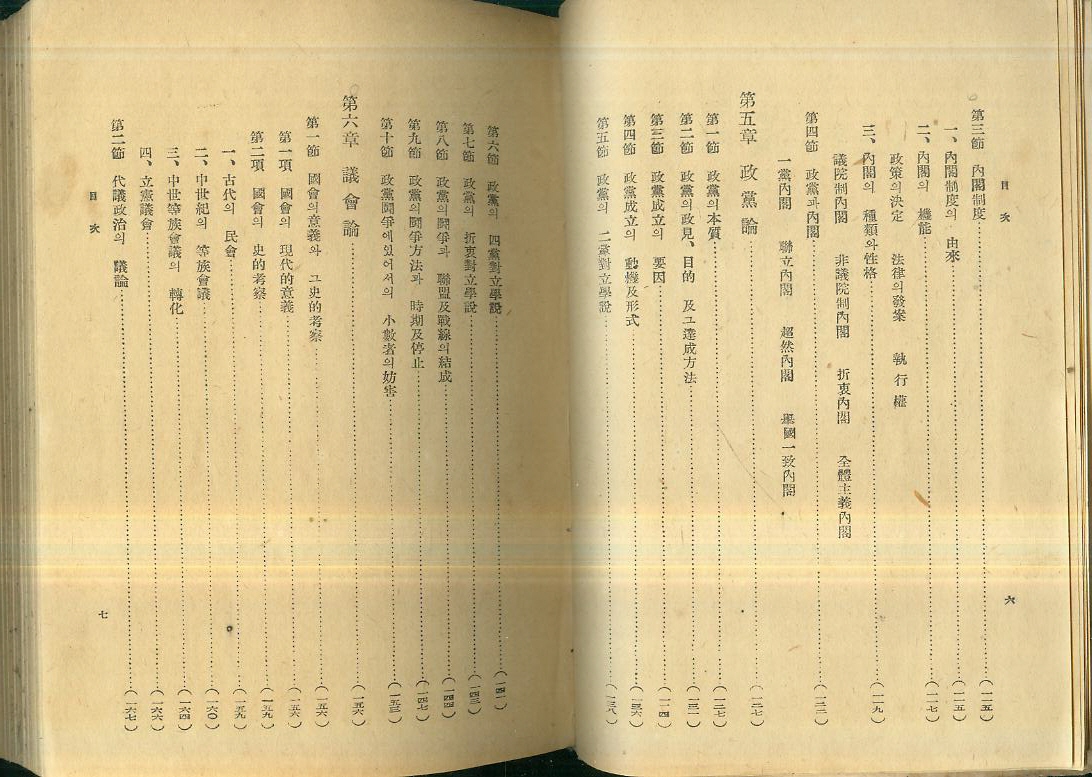 目次
第三節 內閣制度 (一一五)
一、內閣制度의 由來 (一一五)
二、內閣의 機能 (一一七)
政策의決定 法律의發案 執行權
三、內閣의 種類와性格 (一一九)
議院制內閣 非議院制內閣 折衷內閣 全體主義內閣
第四節 政黨과內閣 (一二二)
一黨內閣 聯立內閣 超然內閣 擧國一致內閣
第五章 政黨論 (一二七)
第一節 政黨의本質 (一二七)
第二節 政黨의政見、目的 及그達成方法
第三節 政黨成立의 要因
第四節 政黨成立의 動機及形式 (一三六)
第五節 政黨의 二黨對立學說 (一三八)
六
第六節 政黨의 四黨對立學說 (一四一)
第七節 政黨의 折衷對立學說 (一四三)
第八節 政黨의鬪爭과 聯盟及戰線의結成 (一四四)
第九節 政黨의鬪爭方法과 時期及停止 (一四七)
第十節 政黨鬪爭에있어서의 小數者의妨害 (一五三)
第六章 議會論 (一五六)
第一節 國會의意義와 그史的考察 (一五六)
第一項 國會의 現代的意義 (一五六)
第二項 國會의 史的考察 (一五九)
一、古代의 民會 (一五九)
二、中世紀의 等族會議 (一六〇)
三、中世等族會議의 轉化 (一六四)
四、立憲議會 (一六六)
第二節 代議政治의 議論 (一六七)
目次
七